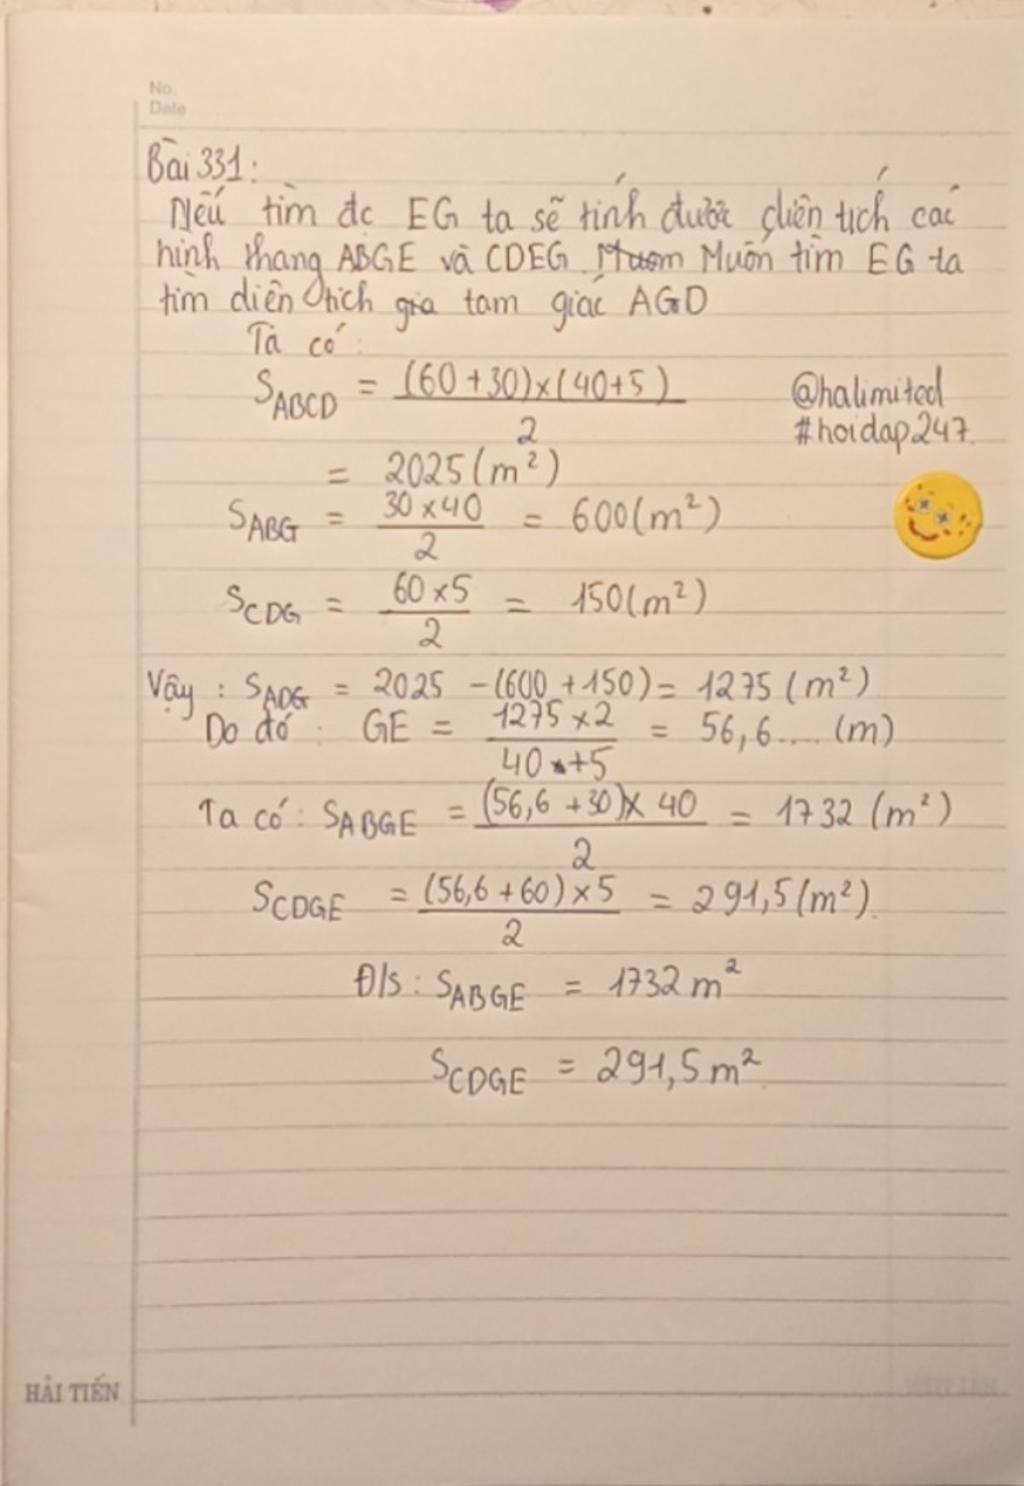 No.
Date
Bài 331:
Nếu tìm đc EG ta sẽ tính được diện tích các
hình thang ABGE và CDEG. Muốn tìm EG ta
tìm diện tích tam giác AGD
Ta có:
S_ABCD = (60+30)×(40+5) / 2
@halimited
#hoidap247
= 2025(m²)
S_ABG = 30×40 / 2 = 600(m²)
S_CDG = 60×5 / 2 = 150(m²)
Vậy : S_ADG = 2025 -(600+150)= 1275 (m²)
Do đó : GE = 1275×2 / 40+5 = 56,6.... (m)
Ta có: S_ABGE = (56,6+30)× 40 / 2 = 1732 (m²)
S_CDGE = (56,6+60)×5 / 2 = 291,5(m²).
Đ/s : S_ABGE = 1732 m²
S_CDGE = 291,5m².
HẢI TIẾN